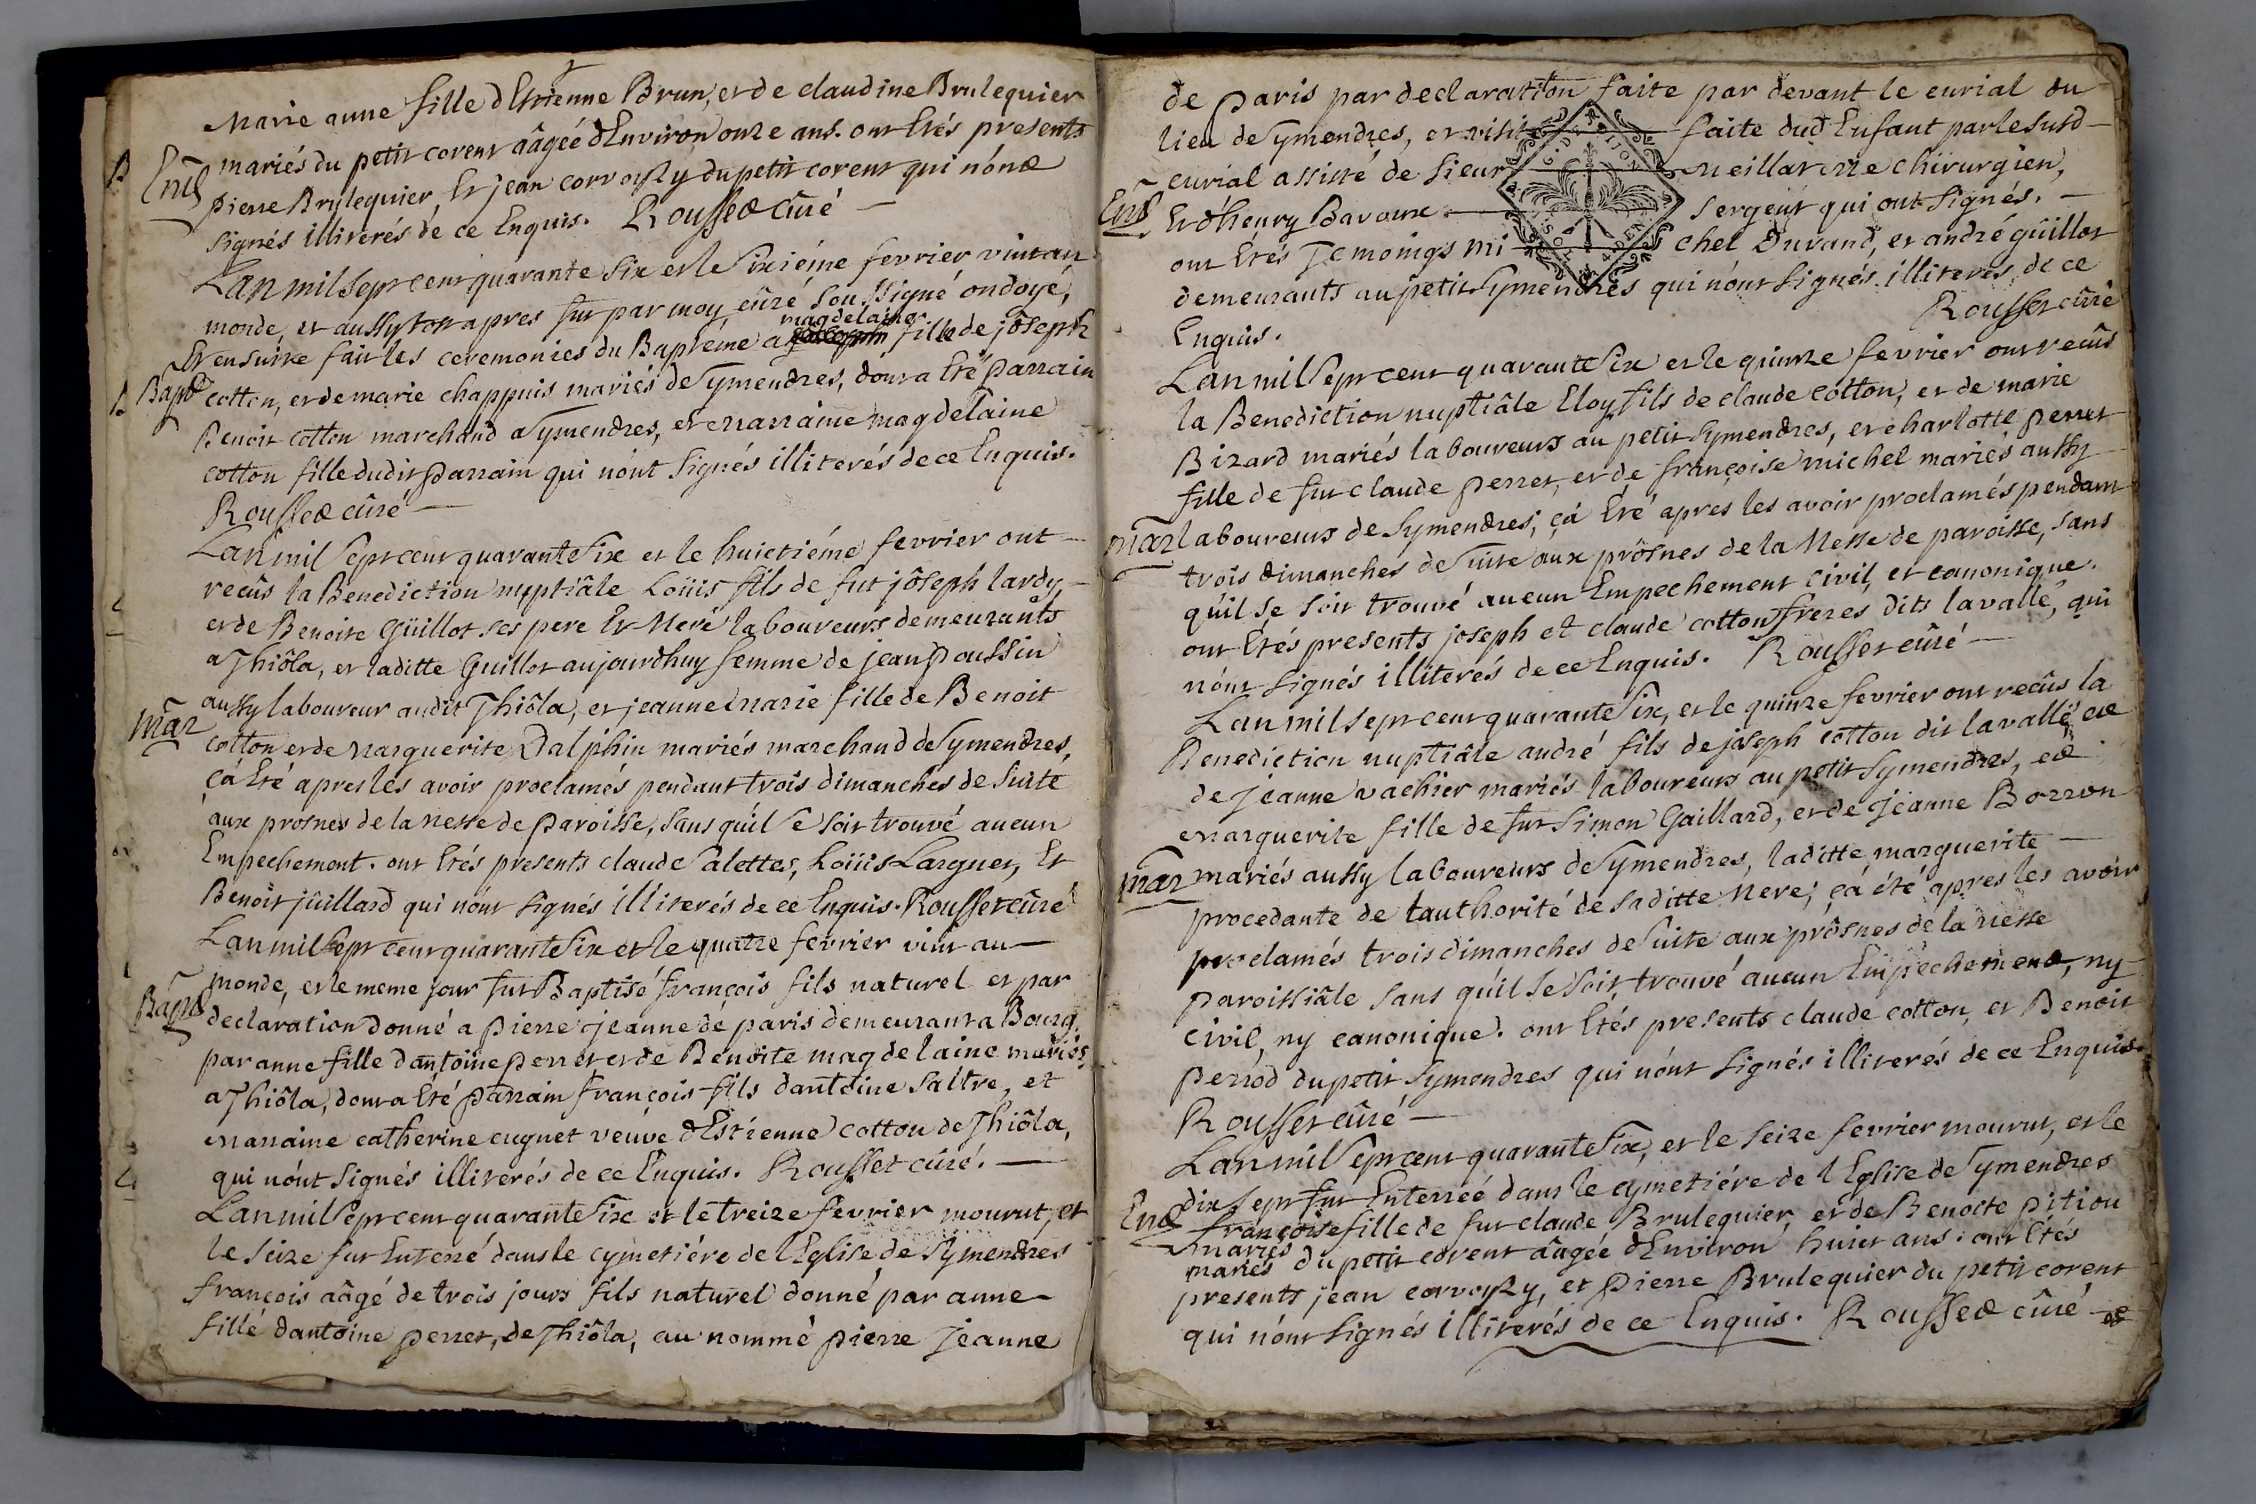 Marie anne fille dEstienne Brun, et de claudine Brulequier
mariés du petit corent âagéé dEnviron onze ans. ont Etés presents
Ent
pierre Brulequier, Et jean corvoysy du petit corent qui nónt
signés illiterés de ce Enquis. Rousset cûré
Lan mil sept cent quarante six et le sixiéme fevrier vint au
monde, et aussytost apres fut par moy cûré soussigné ondoyé,
magdelaine
Et ensuitte fait les ceremonies du Baptéme a fille de jôseph
Bapt
cotton, et de marie chappuis mariés de symendres, dont a Eté parrain
Benoit cotton marchand a symendres, et marraine magdelaine
cotton fille dudit parrain qui nónt signés illiterés de ce Enquis.
Rousset cûré
Lan mil sept cent quarante six et le huictiéme fevrier ont
recûs la Benediction nuptiâle Loüis fils de fut jôseph lardy,
et de Benoite Güillot ses pere Et Mere laboureurs demeurants
a Thiôla, et laditte Guillot aujourdhuy femme de jean poussin
aussy laboureur audit Thiôla, et jeanne Marie fille de Benoit
mar
cotton et de Marguerite Dalphin mariés marchand de symendres,
çá Eté apres les avoir proclamés pendant trois dimanches de suite
aux prosnes de la Messe de paroisse, sans qúil se soit trouvé aucun
Empechement. ont Etés presents claude Salettes, Loüis Larguet, Et
Benoit jüillard qui nónt signés illiterés de ce Enquis. Rousset cûré
Lan mil sept cent quarante six et le quatre fevrier vint au
monde, et le meme jour fut Baptisé françois fils naturel et par
Bapt
declaration donné a pierre jeanne de paris demeurant a Bourg,
par anne fille dantoine perret et de Benoite magdelaine mariés
a Thiôla, dont a Eté parrain françois fils dantoine saltre, et
marraine catherine cugnet veuve dEstienne cotton de Thiôla,
qui nónt signés illiterés de ce Enquis. Rousset cûré.
Lan mil sept cent quarante six et le treize fevrier mourut, et
le seize fut Enterré dans le cymetiére de lEglise de symendres
françois âagé de trois jours fils naturel donné par anne
fille dantoine perret, de Thiôla, au nommé pierre jeanne
de paris par declaration faite par devant le curial du
lieu de symendres, et visit faite dud Enfant par le susd
curial assisté de sieur Meillat Me chirurgien,
Ent
Et dhenry Bavoux sergent qui ont signés.
G. DE DIJON
ont Etés Temoings mi chel Durand, et andré güillot
demeurants au petit symendres qui nónt signés illiterés de ce
Enquis. Rousset cûré
Lan mil sept cent quarante six et le quinze fevrier ont recûs
la Benediction nuptiâle Eloy fils de claude cotton, et de marie
Bizard mariés laboureurs au petit symendres, et charlotte perret
fille de fut claude perret, et de françoise michel mariés aussy
mar
laboureurs de symendres; çá Eté apres les avoir proclamés pendant
trois dimanches de suite aux prôsnes de la Messe de paroisse, sans
qúil se soit trouvé aucun Empechement civil, et canonique.
ont Etés presents joseph et claude cotton freres dits lavallé, qui
nónt signés illiterés de ce Enquis. Rousset cûré
Lan mil sept cent quarante six, et le quinze fevrier ont recûs la
Benediction nuptiâle andré fils de joseph cotton dit lavallé, et
de jeanne vachier mariés laboureurs au petit symendres, et
Marguerite fille de fut simon Gaillard, et de jeanne Borron
mar
mariés aussy laboureurs de symendres, laditte marguerite
procedante de lauthorité de saditte Mere; çá été apres les avoir
proclamés trois dimanches de suite aux prôsnes de la Messe
paroissiâle sans qúil se soit trouvé aucun Empechement, ny
civil, ny canonique. ont Etés presents claude cotton, et Benoit
perrod du petit symendres qui nónt signés illiterés de ce Enquis.
Rousset cûré
Lan mil sept cent quarante six, et le seize fevrier mourut, et le
dix sept fut Enterréé dans le cymetiére de lEglise de symendres
Ent
françoise fille de fut claude Brulequier, et de Benoite pition
mariés
mariés du petit corent âagée dEnviron huict ans. ont Etés
presents jean corvoysy, et pierre Brulequier du petit corent
qui nónt signés illiterés de ce Enquis. Rousset cûré